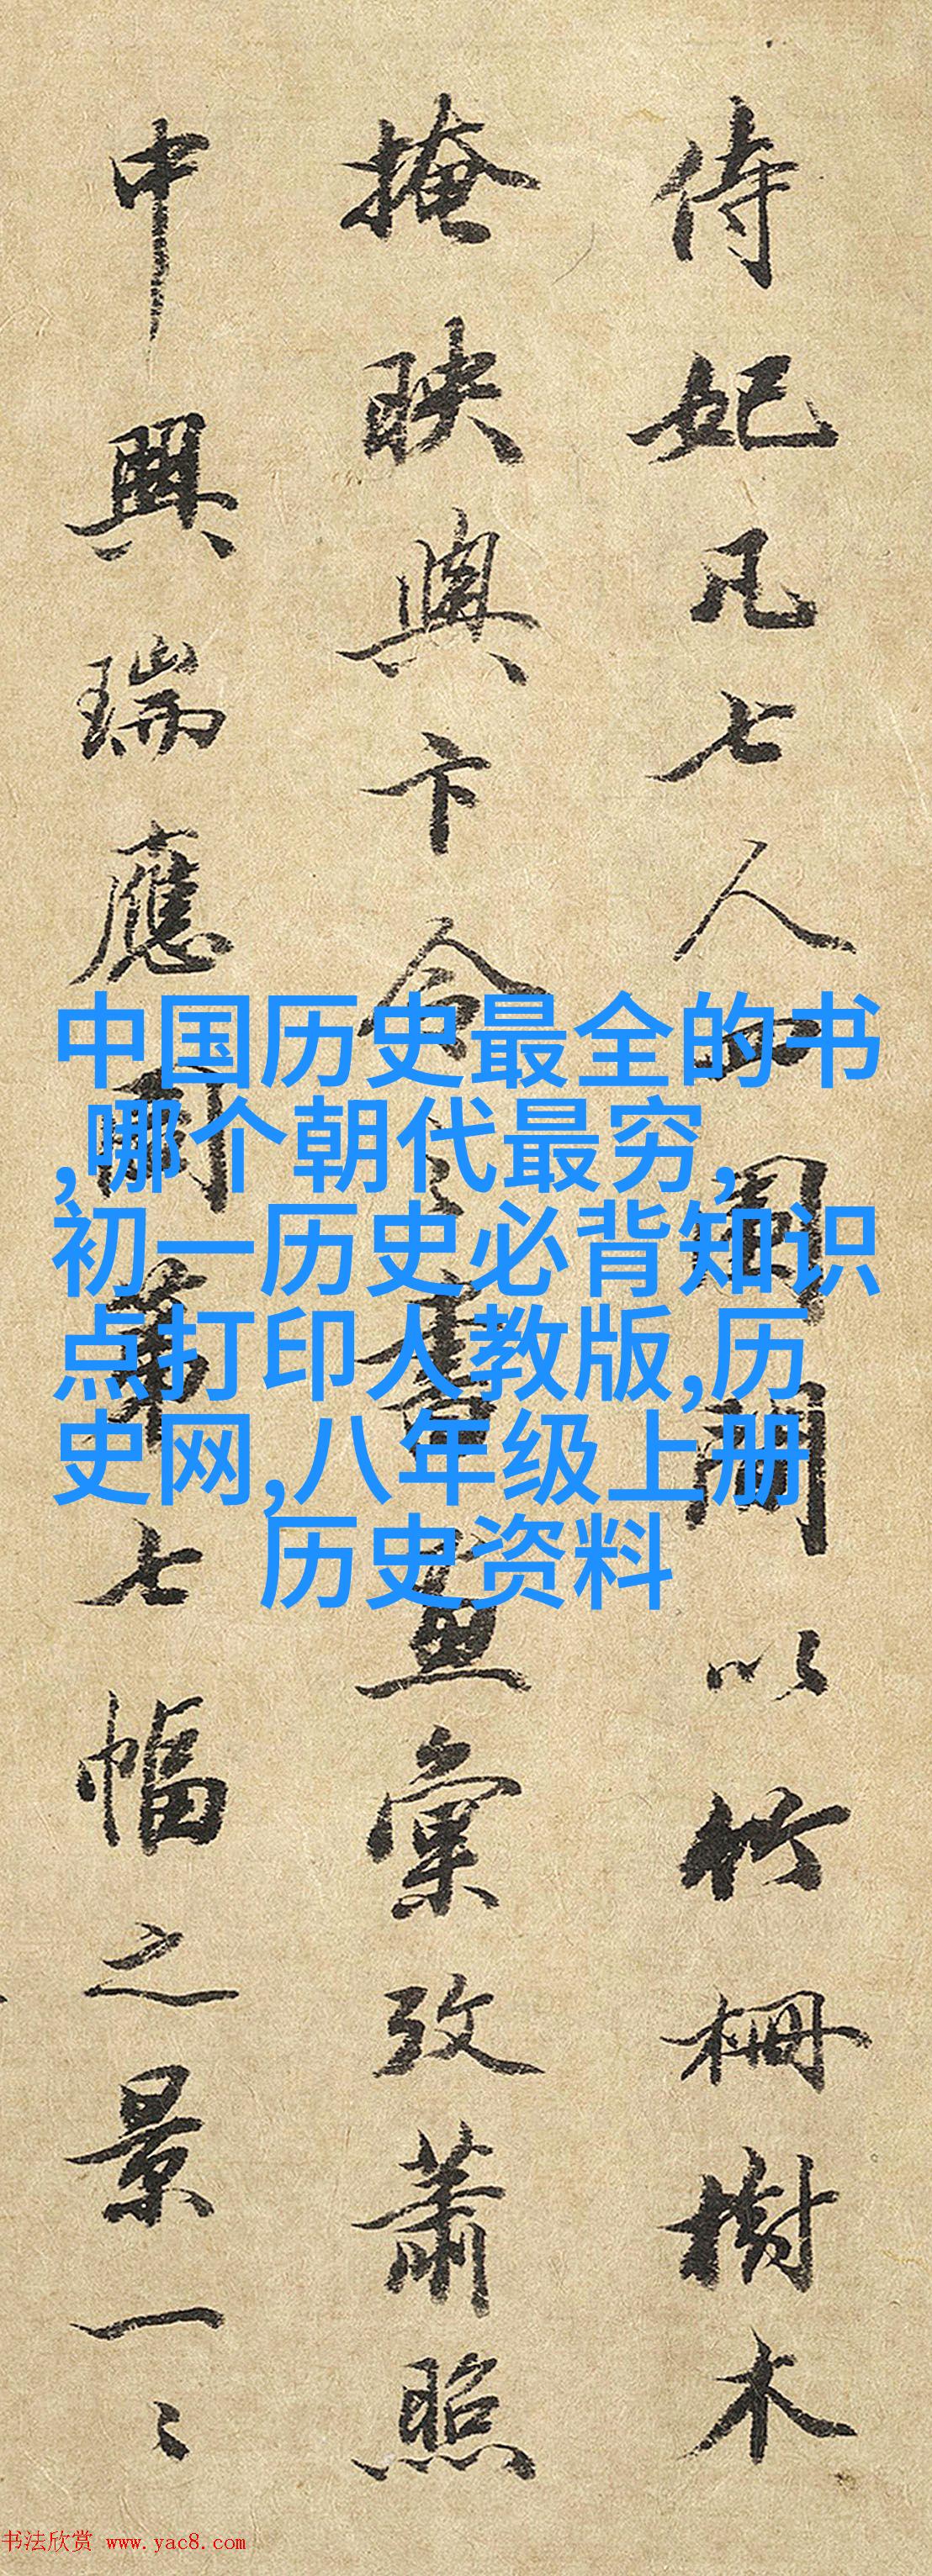 侍妃凡七人四圍闌以竹柵樹木
掩映與卞令之書畫彙攷蕭照
中興瑞應圖第七幅之景一〻
中国历史最全的书
,哪个朝代最穷,
初一历史必背知识
点打印人教版,历
史网,八年级上册
历史资料
书法欣赏 www.yac8.com